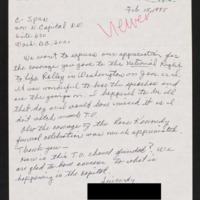 Feb. 15, 1995
C-Span
400 N. Capitol N.W.
Suite 650
Wash. D.C. 20001
Viewer
We want to express our appreciation for
the coverage you gave to the National Right
to Life Rally in Washington on Jan. 23rd.
It was wonderful to hear the speeches and
see the goings on. I happened to be ill
that day and would have missed it as I
don't attend much T.V.
Also the coverage of the Rose Kennedy
funeral celebration was much appreciated.
Thank you -
Now is this T.V. channel funded? We
are glad to have access to what is
happening in the capitol.
Sincerely